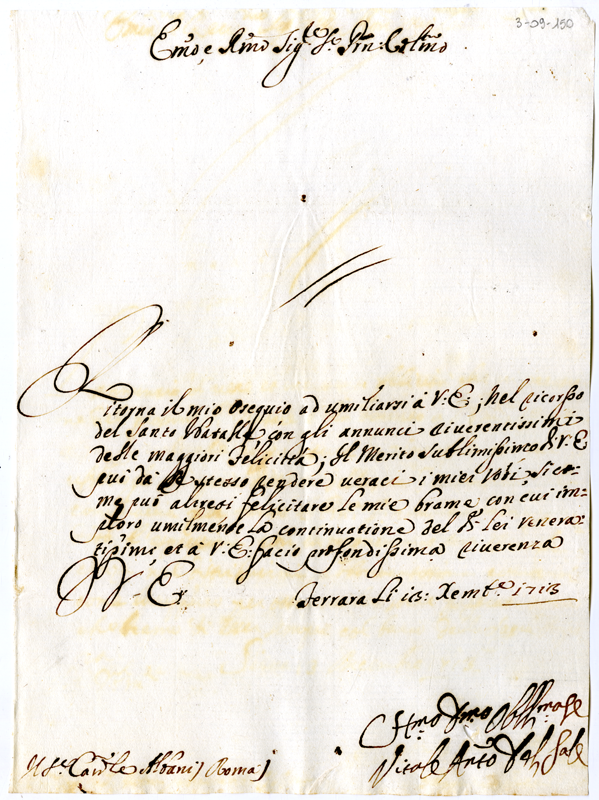 3-09-150
Emo, e Rmo Sigre Sr Prn: Colmo
Ritorna il mio osequio ad umiliarsi à V: E:, nel ricorso
del Santo Natale, con gli annunci riverentissimi
delle maggiori felicità; Il Merito sublimissimo di V: E
può da se stesso rendere veraci i miei voti, sico-
me può altresi felicitare le mie brame con cui im-
ploro umilmente la continuatione del di lei venera-
tissime, et à V: E: facio profondissima riverenza
V. E.
Ferrara li 13: Xembre 1713
Vitale Anto Dal Sale
Sr Cardle Albani Roma